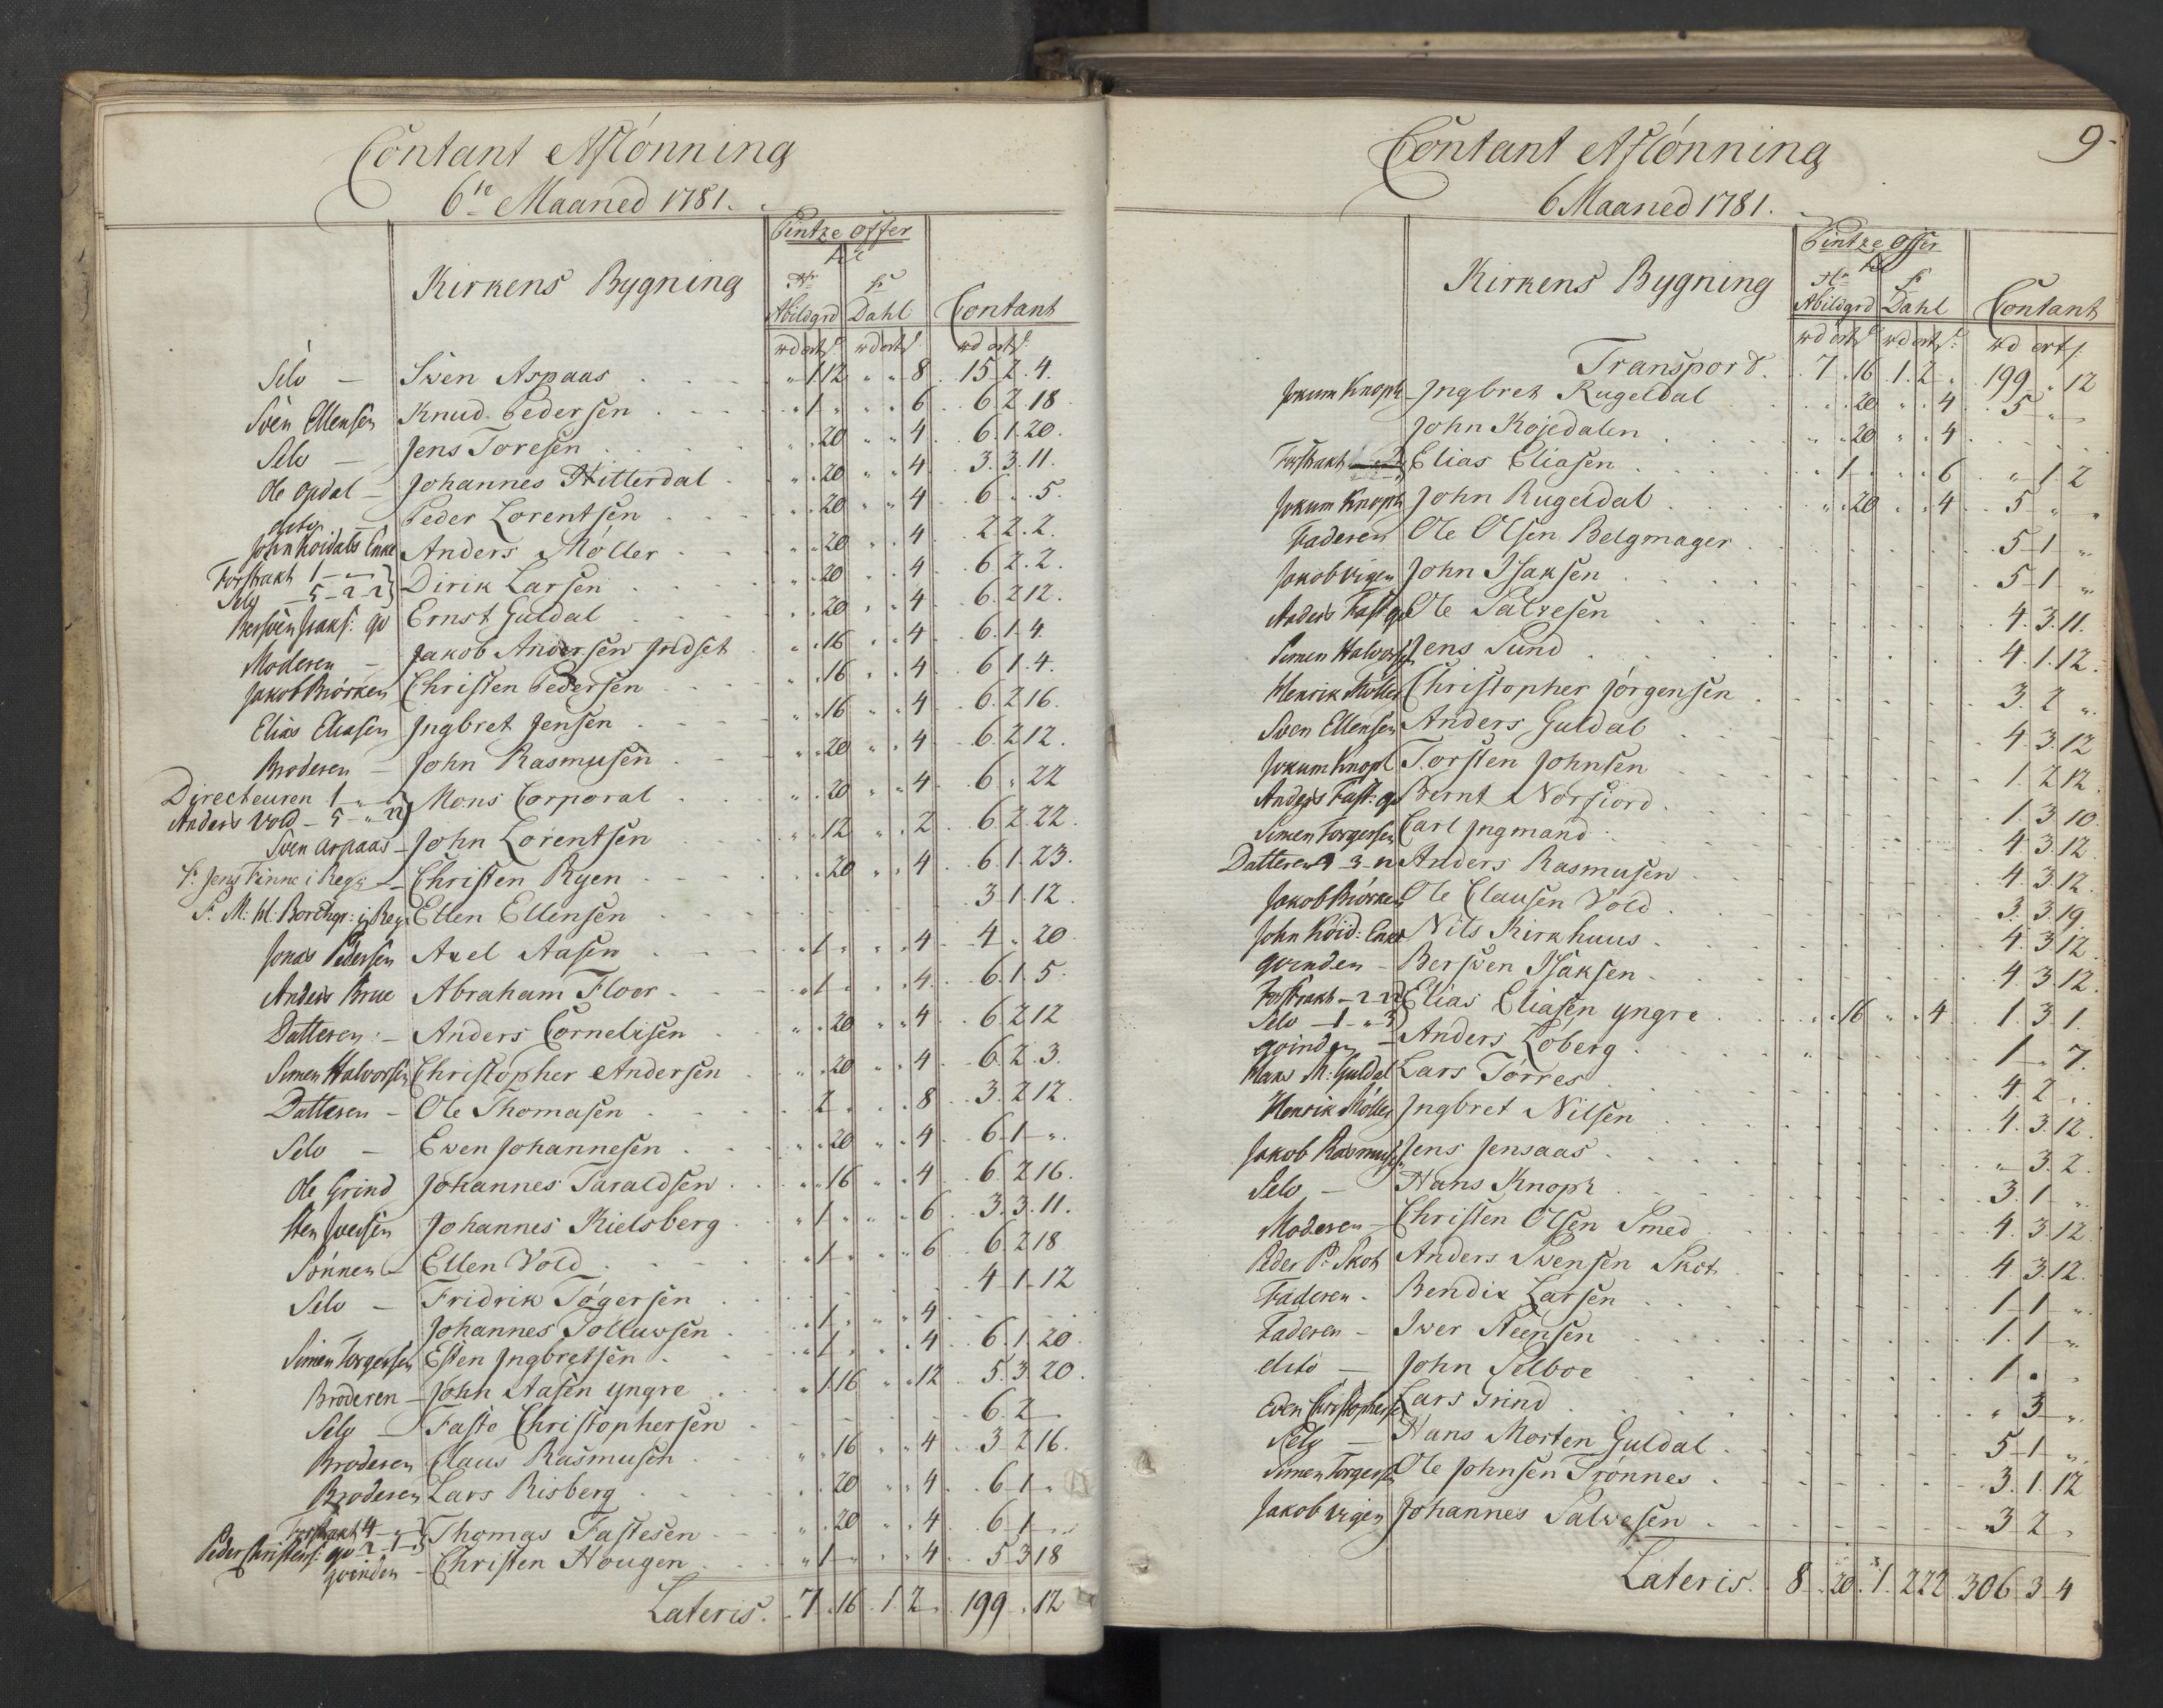 Contant Aflönning
6te Maaned 1781.
Pintze Offer
Kirkens Bygning
Hr Abildgrd
Hr Dahl
Contant
rd ort s: rd ort s: rd ort s:
Selv — Swen Aspaas " 1 12 " " 8 15 2 4.
Sven Ellensen Knud Pedersen " 1 " " " 6 6 2 18
Selv — Jens Toresen " " 20 " " 4 6 1 20.
Ole Opdal — Johannes Hitterdal " " 20 " " 4 3 3 11.
dito Peder Lorentsen " " 20 " " 4 6 " 5.
John Koidals Enke Anders Möller " " 20 " " 4 2 2 2.
Forstrakt 1 — " —
Selv — 5 - 2 - 2 } Dirik Larsen " " 20 " " 4 6 2 2.
Bersven Isaks: qv Ernst Guldal " " 20 " " 4 6 2 12.
Moderen — Jakob Andersen Indset " " 16 " " 4 6 1 4.
Jakob Biörken Christen Pedersen " " 16 " " 4 6 1 4.
Elias Eliasen Ingbret Jensen " " 16 " " 4 6 2 16.
Broderen — John Rasmusen " " 20 " " 4 6 2 12.
Directeuren 1 — " —
Anders Vold — 5 - " 22 } Mons Corporal " " 20 " " 4 6 " 22
Sven Aspaas — John Lorentsen " " 12 " " 2 6 2 22.
Hr Jens Finne i Regg — Christen Ryen " " 20 " " 4 6 1 23.
Hr M: W: Borchgr: i Reg: Ellen Ellensen 3 1 12.
Jonas Pedersen Axel Aasen " 1 " " " 4 4 " 20
Anders Brue Abraham Floer " 1 " " " 4 6 1 5.
Datteren — Anders Cornelisen " " 20 " " 4 6 2 12
Simen Halvorsen Christopher Andersen " " 20 " " 4 6 2 3.
Datteren — Ole Thomasen " 2 " " " 8 3 2 12.
Selv — Ewen Johannesen " " 20 " " 4 6 1 ".
Ole Grind Johannes Taraldsen " " 16 " " 4 6 2 16.
Sten Iversen Johannes Kielsberg " 1 " " " 6 3 3 11.
Sönnen — Ellen Vold " 1 " " " 6 6 2 18
Selv — Fridrik Tøgersen 4 1 12
Johannes Tolluwsen " 1 " " " 4
Simen Torgersen Esten Ingbretsen " 1 " " " 4 6 1 20
Broderen — John Aasen yngre " 1 16 " " 12 5 3 20.
Selv — Faste Christophersen 6 2 —
Broderen Claus Rasmusen " " 16 " " 4 3 2 16.
Broderen Lars Risberg " " 20 " " 4 6 1 "
Forstrakt 4 - " -
Peder Christens: qv 2 - 1 - } Thomas Fastesen " " 20 " " 4 6 1 "
qvinden — Christen Hougen " 1 " " " 4 5 3 18
Lateris. 7 " 16 1 2 " 199 " 12
9
Contant Aflönning
6 Maaned 1781.
Pintze Offer
Kirkens Bygning
Hr Abildgrd
Hr Dahl
Contant
rd ort s: rd ort s: rd ort s:
Transport. 7 " 16 1 2 " 199 " 12
Jokum Knoph Ingbret Rugeldal " " 20 " " 4 5 " —
John Kojedalen " " 20 " " 4
Forstrakt Elias Eliasen " 1 " " " 6 " 1 2
Jokum Knoph John Rugeldal " " 20 " " 4 5 " "
Faderen Ole Olsen Belgmager 5 1 "
Jakob Vigen John Isaksen 5 1 "
Anders Fast: qv Ole Salvesen 4 3 11.
Simen Halvors: Jens Sund 4 1 12.
Henrik Möller Christopher Jörgensen 3 2 ".
Sven Ellensen Anders Guldal 4 3 12
Jokum Knoph Torsten Johnsen 1 2 12.
Anders Fast: qv Bernt Norfiord 1 3 10.
Simen Torgersen Carl Ingmand 4 3 12
Datteren 4 3 12 Anders Rasmusen 4 3 12.
Jakob Biörken Ole Clausen Vold 3 3 19
John Koid: Enke Nils Kirkhuus 4 3 12
qvinden — Berswen Isaksen 4 3 12.
Forstrakt — 2 22
Selv — 1 - " 3 } Elias Eliasen yngre " " 16 " " 4 1 3 1.
qvinden — Anders Löberg 1 " 7.
Hans M: Guldal Lars Torres 4 2 "
Henrik Möller Ingbret Nilsen 4 3 12.
Jakob Rasmusen Jens Jensaas " 3 2.
Selv — Hans Knoph 3 1 "
Moderen — Christen Olsen Smed 4 3 12
Peder P: Skot Anders Swensen Skot 4 3 12.
Faderen — Bendix Larsen 1 1 "
Faderen — Iwer Steensen 1 1 "
dito — John Selboe 1 " "
Even Christophersen Lars Grind " 3 "
Selv — Hans Morten Guldal 5 1 "
Simen Torgersen Ole Johnsen Trönnes 3 1 12
Jakob Vigen Johannes Salwesen 3 2 "
Lateris. 8 " 20 1 2 22 306 3 4